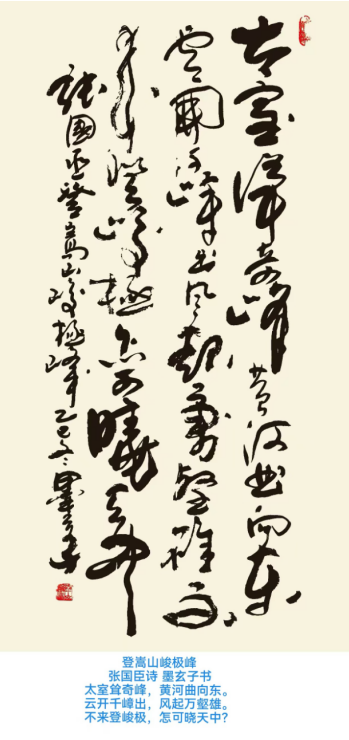 太室耸奇峰黄河曲向东
云开千峰出风起万壑雄不
来登峻极怎可晓天中
张国臣登嵩山峻极峰乙巳冬墨玄子书
登嵩山峻极峰
张国臣诗 墨玄子书
太室耸奇峰，黄河曲向东。
云开千嶂出，风起万壑雄。
不来登峻极，怎可晓天中？